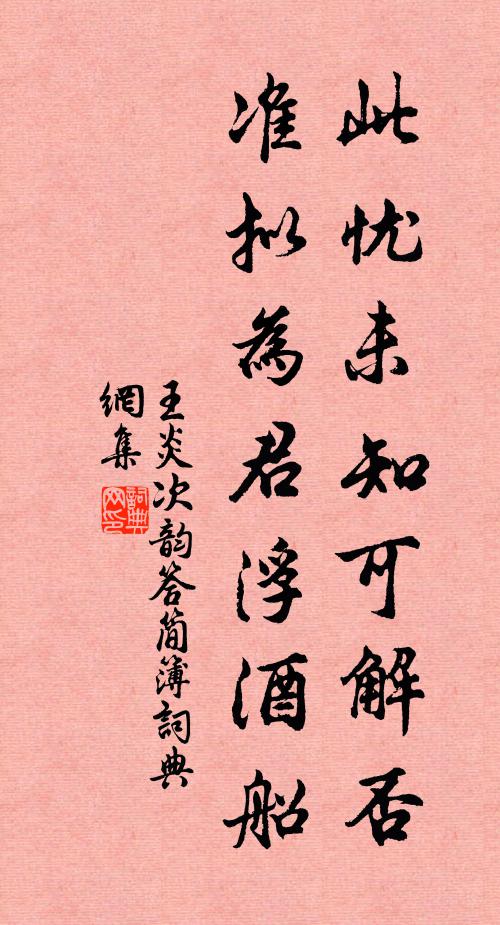 此忧未知可解否
准拟為君浮酒船
王炎次韵答简簿詞典
網集
詞典网印